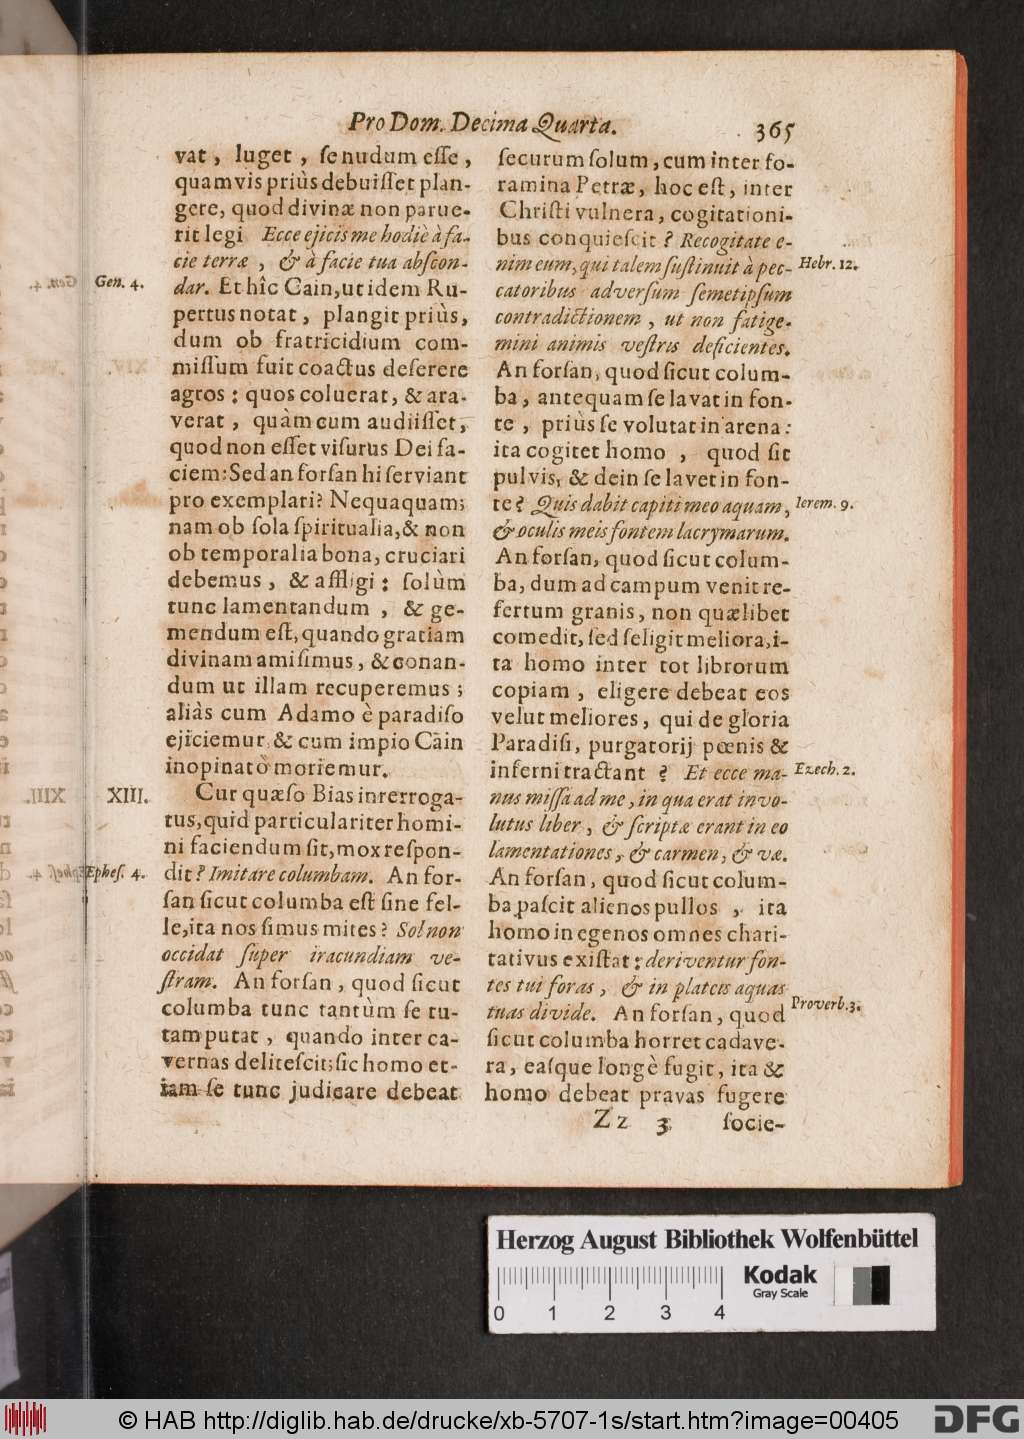 Pro Dom. Decima Quarta.
365
vat, luget, ſe nudum eſſe,
quamvis priùs debuiſſet plan-
gere, quod divinæ non parue-
rit legi Ecce ejicis me hodiè à fa-
cie terræ, & à facie tua abſcon-
Gen. 4.
dar. Et hîc Cain, ut idem Ru-
pertus notat, plangit priùs,
dum ob fratricidium com-
miſſum fuit coactus deſerere
agros: quos coluerat, & ara-
verat, quàm cum audiiſſet,
quod non eſſet viſurus Dei fa-
ciem: Sed an forſan hi ſerviant
pro exemplari? Nequaquam;
nam ob ſola ſpiritualia, & non
ob temporalia bona, cruciari
debemus, & affligi: ſolùm
tunc lamentandum, & ge-
mendum eſt, quando gratiam
divinam amiſimus, & conan-
dum ut illam recuperemus;
aliàs cum Adamo è paradiſo
ejiciemur & cum impio Cain
inopinatò moriemur.
XIII.
Cur quæſo Bias inrerroga-
tus, quid particulariter homi-
ni faciendum ſit, mox reſpon-
Epheſ. 4.
dit? Imitare columbam. An for-
ſan ſicut columba eſt ſine fel-
le, ita nos ſimus mites? Sol non
occidat ſuper iracundiam ve-
ſtram. An forſan, quod ſicut
columba tunc tantùm ſe tu-
tam putat, quando inter ca-
vernas deliteſcit; ſic homo et-
iam ſe tunc judicare debeat
ſecurum ſolum, cum inter fo-
ramina Petræ, hoc eſt, inter
Chriſti vulnera, cogitationi-
bus conquieſcit? Recogitate e-
nim eum, qui talem ſuſtinuit à pec-
Hebr. 12.
catoribus adverſum ſemetipſum
contradictionem, ut non fatige-
mini animis veſtris deficientes.
An forſan, quod ſicut colum-
ba, antequam ſe lavat in fon-
te, priùs ſe volutat in arena:
ita cogitet homo, quod ſit
pulvis, & dein ſe lavet in fon-
te? Quis dabit capiti meo aquam,
Ierem. 9.
& oculis meis fontem lacrymarum.
An forſan, quod ſicut colum-
ba, dum ad campum venit re-
fertum granis, non quælibet
comedit, ſed ſeligit meliora, i-
ta homo inter tot librorum
copiam, eligere debeat eos
velut meliores, qui de gloria
Paradiſi, purgatorij pœnis &
inferni tractant? Et ecce ma-
Ezech. 2.
nus miſſa ad me, in qua erat invo-
lutus liber, & ſcriptæ erant in eo
lamentationes, & carmen, & væ.
An forſan, quod ſicut colum-
ba paſcit alienos pullos, ita
homo in egenos omnes chari-
tativus exiſtat: deriventur fon-
tes tui foras, & in plateis aquas
Proverb. 3.
tuas divide. An forſan, quod
ſicut columba horret cadave-
ra, eaſque longè fugit, ita &
homo debeat pravas fugere
Zz 3
ſocie-
Herzog August Bibliothek Wolfenbüttel
0 1 2 3 4
Kodak
Gray Scale
© HAB http://diglib.hab.de/drucke/xb-5707-1s/start.htm?image=00405
DFG